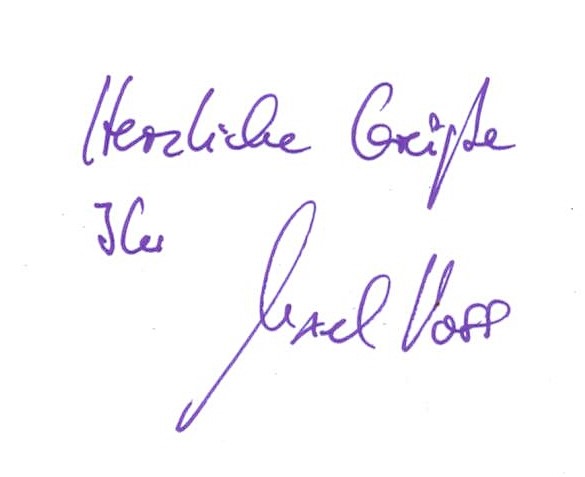 Herzliche Grüße
Ihr
Axel Voss